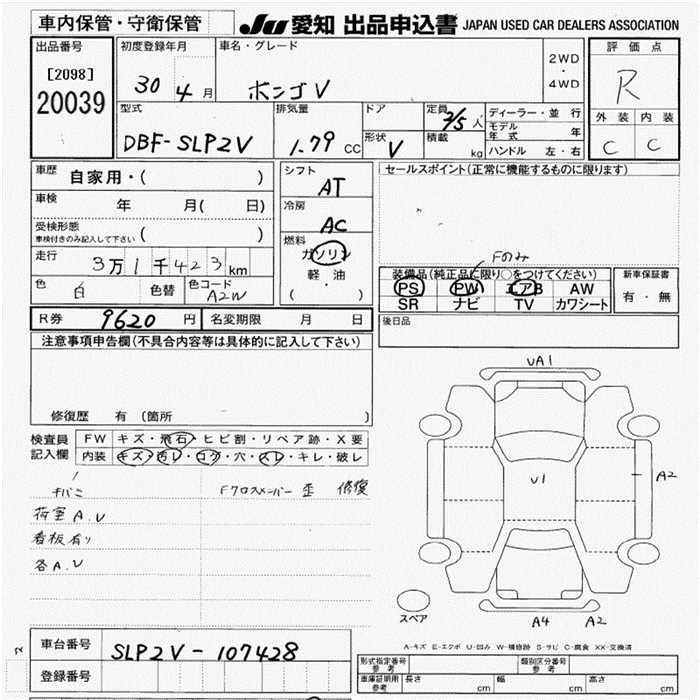 車内保管・守衛保管
JU 愛知 出品申込書 JAPAN USED CAR DEALERS ASSOCIATION
出品番号
[2098]
20039
初度登録年月
30 4 月
車名・グレード
ボンゴV
2WD
・
4WD
評価点
R
外装 内装
C C
型式
DBF-SLP2V
排気量
1.79 CC
ドア
形状
V
定員
2/5 人
積載
kg
ディーラー・並行
モデル年式 年
ハンドル 左・右
車歴
自家用・( )
車検
年 月( 日)
受検形態
車検付きのみ記入して下さい ( )
走行
3万1千423km
色
白
色替
色コード
A2W
シフト
AT
冷房
AC
燃料
ガソリン
軽・油
( )
セールスポイント(正常に機能するものに限ります)
Fのみ
装備品(純正品に限り○をつけてください)
PS PW エアB AW
SR ナビ TV カワシート
新車保証書
有・無
R券 9620 円
名変期限 月 日
後日品
注意事項申告欄(不具合内容等は具体的に記入して下さい)
修復歴 有(箇所 )
検査員
記入欄
FW キズ・飛石・ヒビ割・リペア跡・X要
内装 キズ・汚レ・コゲ・穴・スレ・キレ・破レ
Fクロスメンバー 歪 修復
荷室A.U
看板有り
各A.U
UA1
U1
A2
A4 A2
スペア
A-キズ E-エクボ U-凹み W-補修跡 S-サビ C-腐食 XX-交換済
車台番号
SLP2V-107428
登録番号
型式指定番号
参考
類別区分番号
参考
車庫証明用
参考
長さ cm 幅 cm 高さ cm